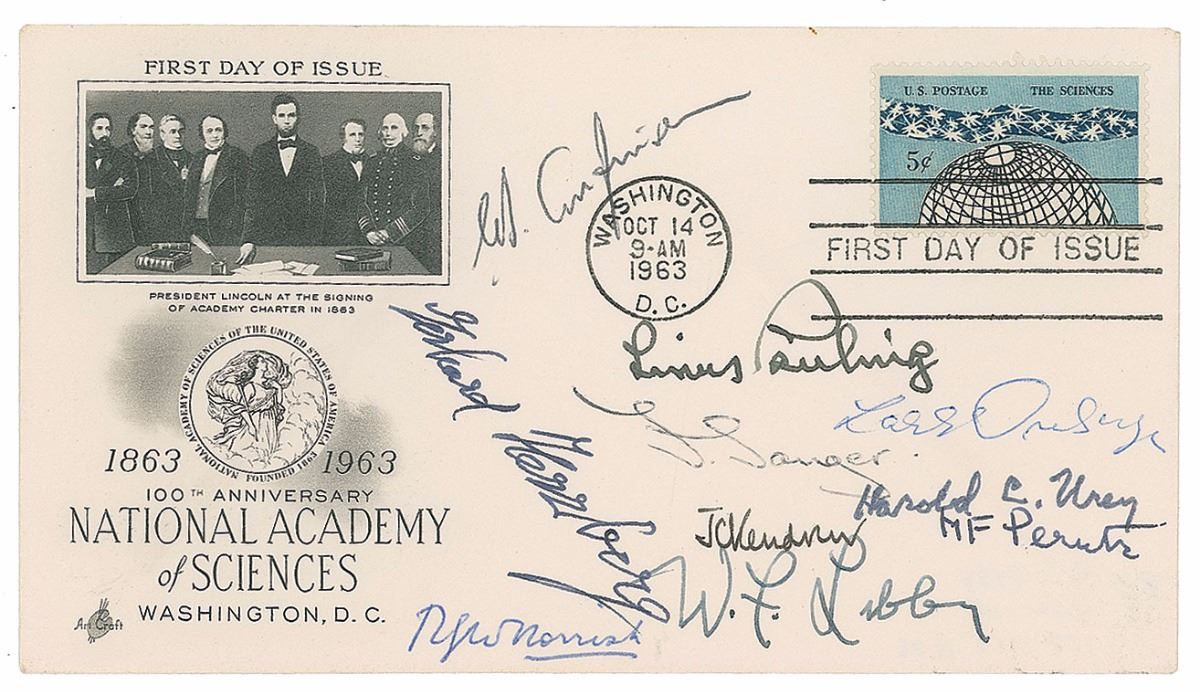 FIRST DAY OF ISSUE
PRESIDENT LINCOLN AT THE SIGNING
OF ACADEMY CHARTER IN 1863
NATIONAL ACADEMY OF SCIENCES OF THE UNITED STATES OF AMERICA
FOUNDED 1863
1863 1963
100TH ANNIVERSARY
NATIONAL ACADEMY
of SCIENCES
WASHINGTON, D. C.
Art Craft
U.S. POSTAGE THE SCIENCES
5¢
WASHINGTON
OCT 14
9-AM
1963
D.C.
FIRST DAY OF ISSUE
Linus Pauling
F. Sanger
Harold C. Urey
MF Perutz
JCKendrew
W. F. Libby
Gerhard Herzberg
RGW Norrish